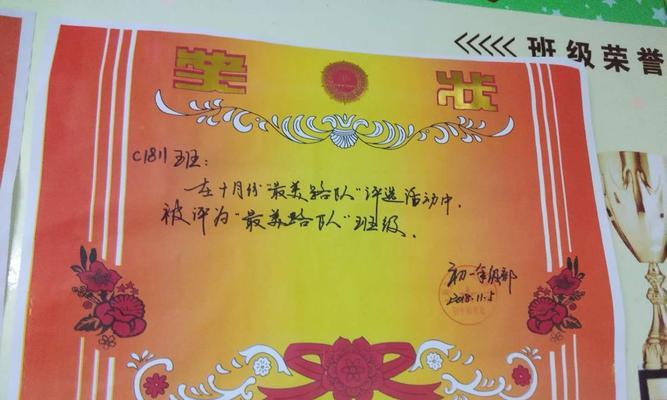 班级荣誉
奖状
C1811班：
在十月份“最美路队”评选活动中，
被评为“最美路队”班级。
初一年级部
2018.11.5